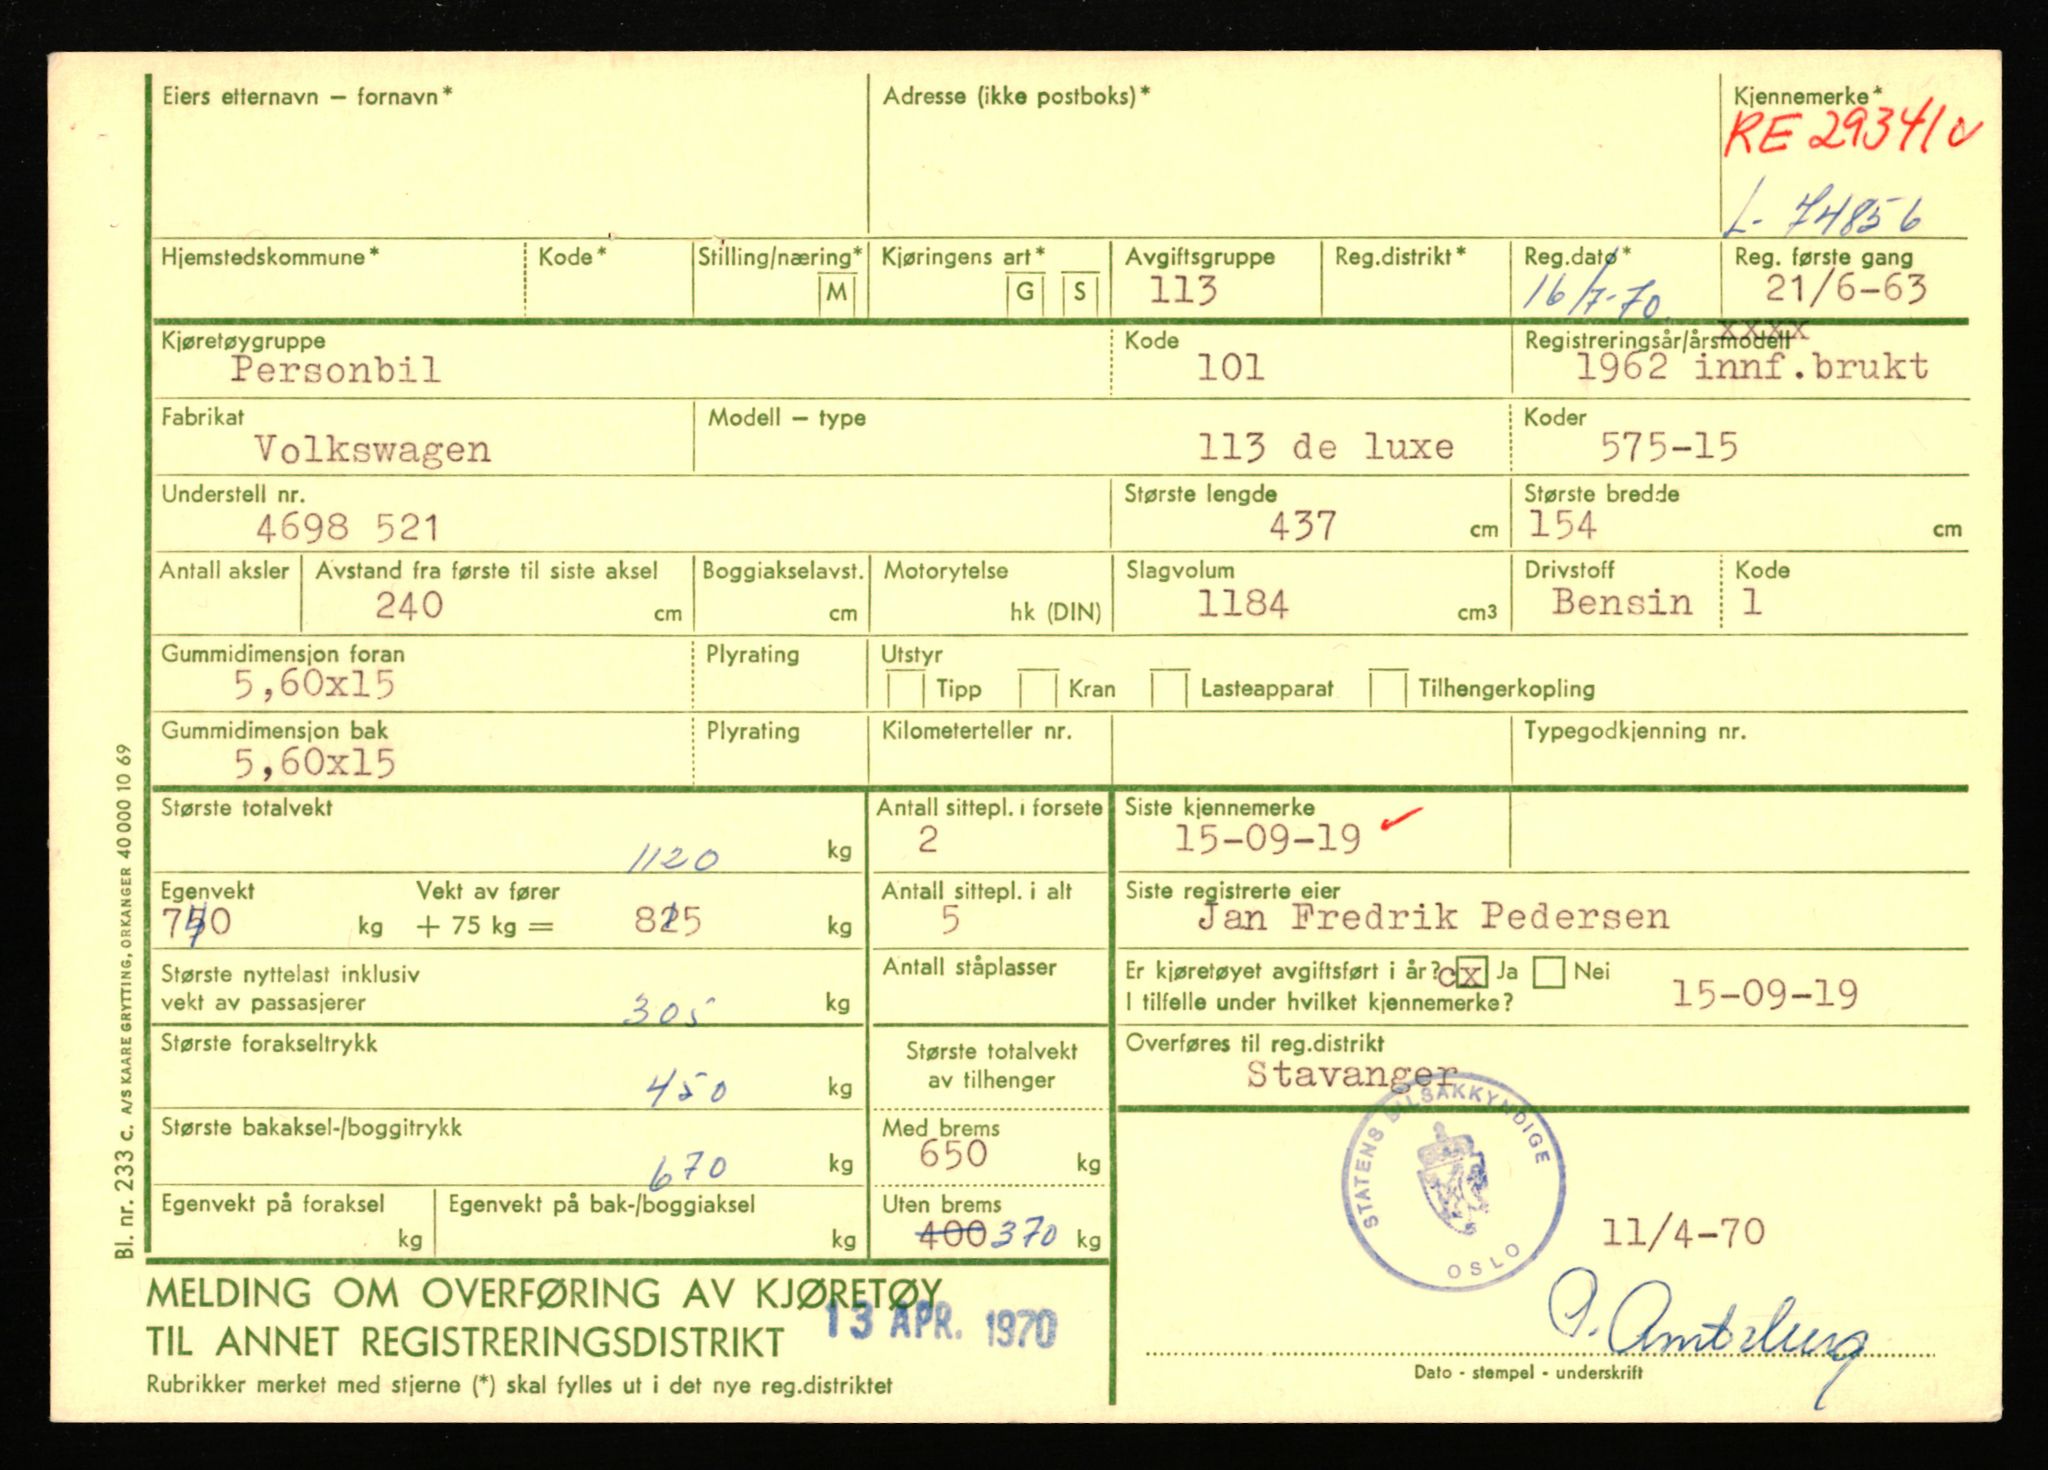 Eiers etternavn – fornavn*
Adresse (ikke postboks)*
Kjennemerke*
RE 29341
L- 74856
Hjemstedskommune*
Kode*
Stilling/næring*
M
Kjøringens art*
G
S
Avgiftsgruppe
113
Reg.distrikt*
Reg.dato*
16/7-70
Reg. første gang
21/6-63
Kjøretøygruppe
Personbil
Kode
101
xxxx
Registreringsår/årsmodell
1962 innf.brukt
Fabrikat
Volkswagen
Modell – type
113 de luxe
Koder
575-15
Understell nr.
4698 521
Største lengde
437 cm
Største bredde
154 cm
Antall aksler
Avstand fra første til siste aksel
240 cm
Boggiakselavst.
cm
Motorytelse
hk (DIN)
Slagvolum
1184 cm3
Drivstoff
Bensin
Kode
1
Gummidimensjon foran
5,60x15
Plyrating
Utstyr
Tipp
Kran
Lasteapparat
Tilhengerkopling
Gummidimensjon bak
5,60x15
Plyrating
Kilometerteller nr.
Typegodkjenning nr.
Største totalvekt
1120 kg
Antall sittepl. i forsete
2
Siste kjennemerke
15-09-19
Egenvekt
740 kg
Vekt av fører
+ 75 kg = 815 kg
Antall sittepl. i alt
5
Siste registrerte eier
Jan Fredrik Pedersen
Største nyttelast inklusiv
vekt av passasjerer
305 kg
Antall ståplasser
Er kjøretøyet avgiftsført i år? cx Ja Nei
I tilfelle under hvilket kjennemerke?
15-09-19
Største forakseltrykk
450 kg
Største totalvekt
av tilhenger
Overføres til reg.distrikt
Stavanger
Største bakaksel-/boggitrykk
670 kg
Med brems
650 kg
Egenvekt på foraksel
kg
Egenvekt på bak-/boggiaksel
kg
Uten brems
400 370 kg
STATENS BILSAKKYNDIGE
OSLO
11/4-70
MELDING OM OVERFØRING AV KJØRETØY
TIL ANNET REGISTRERINGSDISTRIKT
13 APR. 1970
Rubrikker merket med stjerne (*) skal fylles ut i det nye reg.distriktet
Dato - stempel - underskrift
Bl. nr. 233 c. A/S KAARE GRYTTING, ORKANGER 40 000 10 69